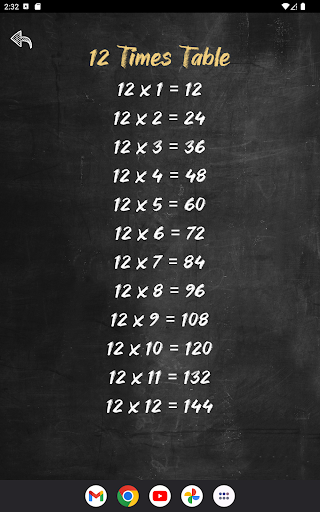 2:32
12 Times Table
12 x 1 = 12
12 x 2 = 24
12 x 3 = 36
12 x 4 = 48
12 x 5 = 60
12 x 6 = 72
12 x 7 = 84
12 x 8 = 96
12 x 9 = 108
12 x 10 = 120
12 x 11 = 132
12 x 12 = 144